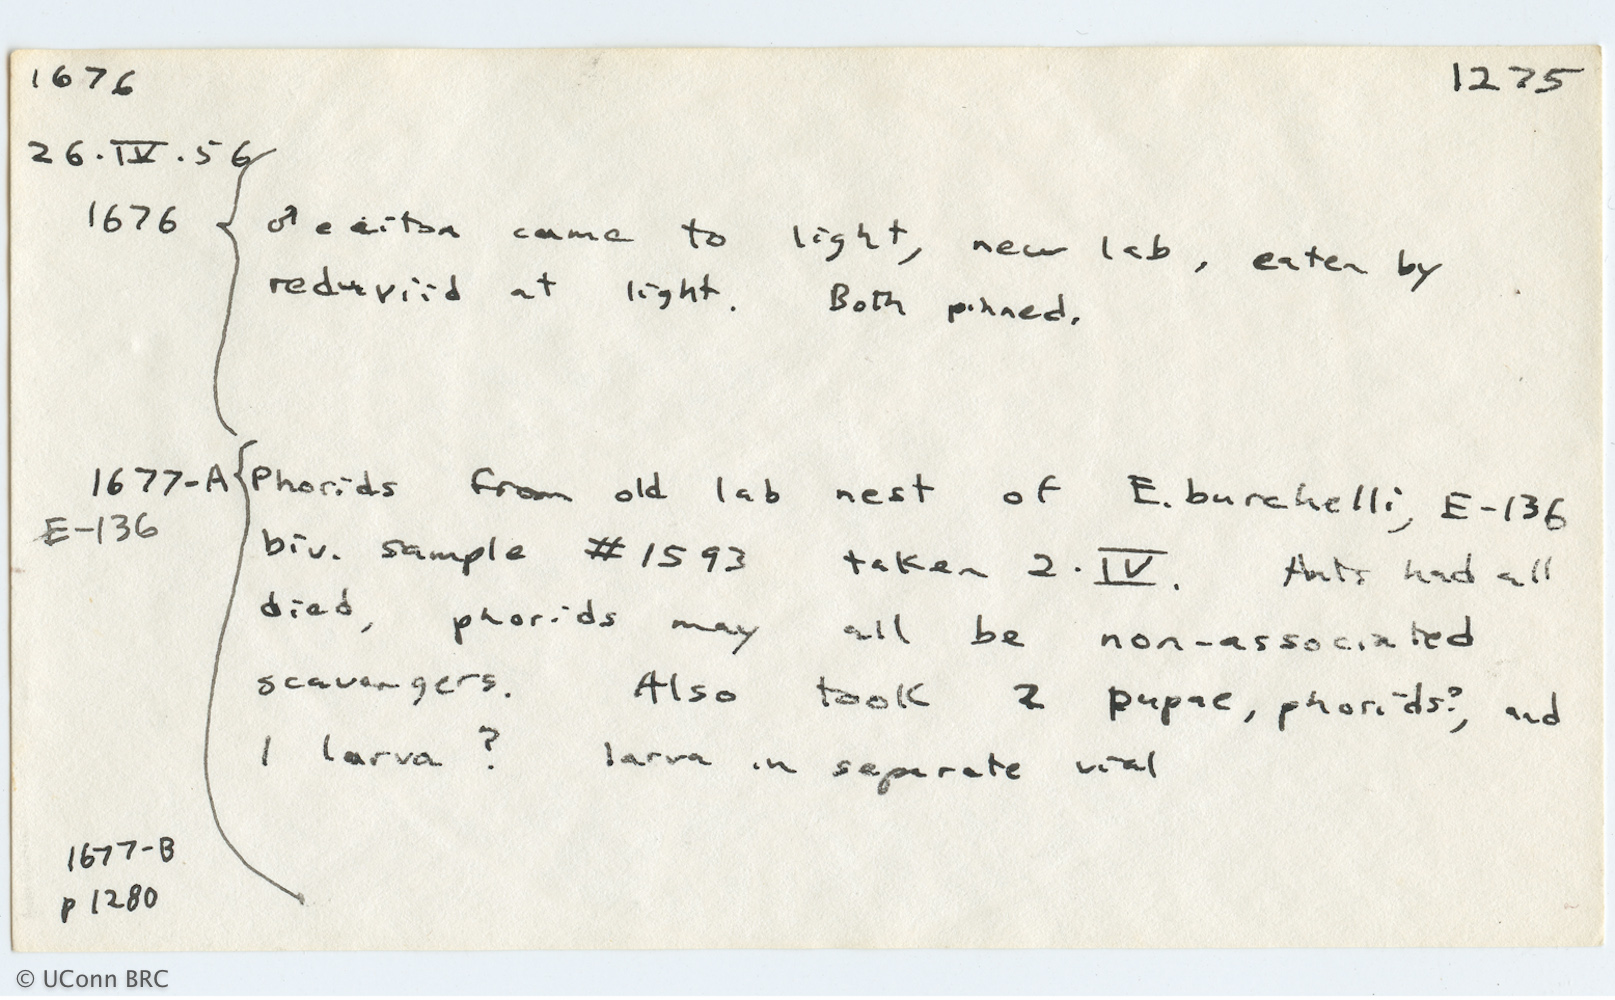 1676 1275
26.IV.56
1676 ♂ eciton came to light, new lab, eaten by
reduviid at light. Both pinned.
1677-A Phorids from old lab nest of E. burchelli, E-136
E-136 biv. sample #1593 taken 2.IV. Ants had all
died, phorids may all be non-associated
scavengers. Also took 2 pupae, phorids?, and
1 larva? larva in separate vial
1677-B
p 1280
© UConn BRC